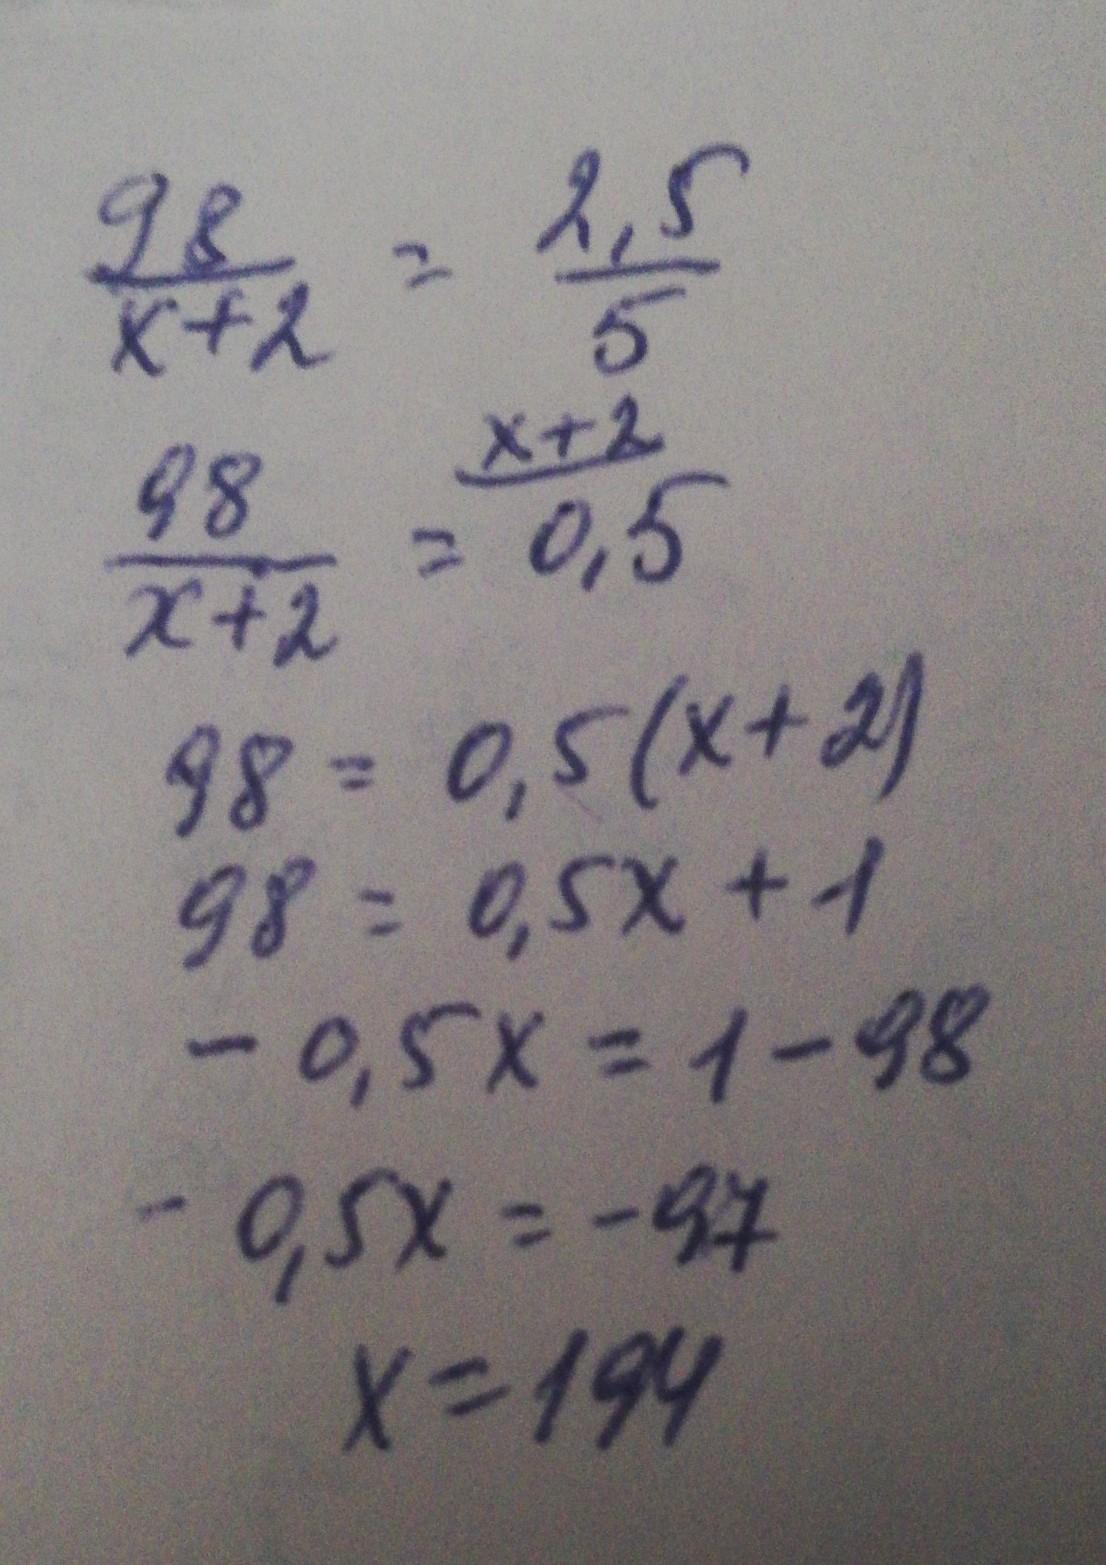 98/(x+2) = 2,5/5
98/(x+2) = (x+2)/0,5
98 = 0,5(x+2)
98 = 0,5x + 1
- 0,5x = 1 - 98
- 0,5x = -97
x = 194